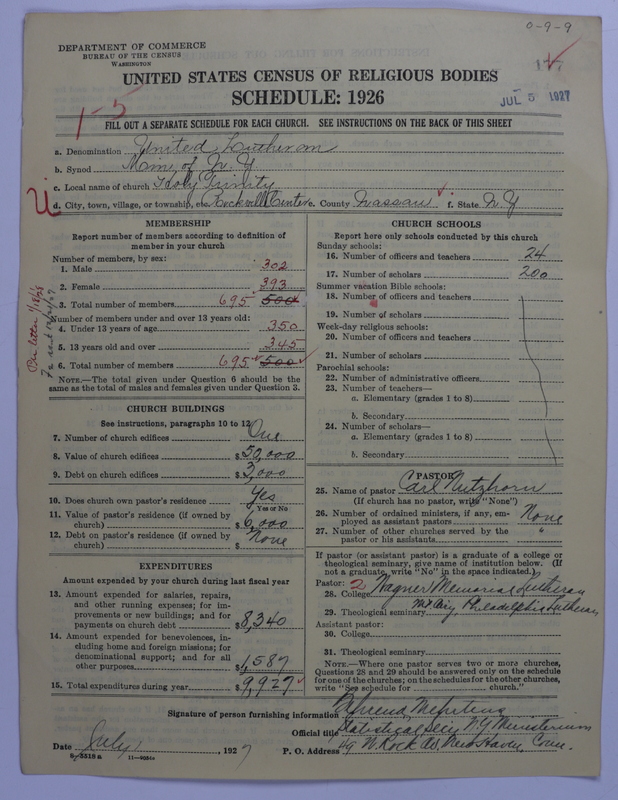 0-9-9
DEPARTMENT OF COMMERCE
BUREAU OF THE CENSUS
WASHINGTON
JUL 5 1927
UNITED STATES CENSUS OF RELIGIOUS BODIES
SCHEDULE: 1926
1-5
FILL OUT A SEPARATE SCHEDULE FOR EACH CHURCH. SEE INSTRUCTIONS ON THE BACK OF THIS SHEET
a. Denomination United Lutheran
b. Synod Min of N.Y.
c. Local name of church Holy Trinity
d. City, town, village, or township, etc. Rockville Centre e. County Nassau f. State N.Y
MEMBERSHIP
Report number of members according to definition of
member in your church
Number of members, by sex:
1. Male 302
2. Female 393
3. Total number of members 695 500
Number of members under and over 13 years old:
4. Under 13 years of age 350
5. 13 years old and over 345
6. Total number of members 695 500
NOTE.—The total given under Question 6 should be the
same as the total of males and females given under Question 3.
Per letter 1/18/28
CHURCH BUILDINGS
See instructions, paragraphs 10 to 12
7. Number of church edifices One
8. Value of church edifices $50,000
9. Debt on church edifices $3,000
10. Does church own pastor's residence Yes
Yes or No
11. Value of pastor's residence (if owned by
church) $6,000
12. Debt on pastor's residence (if owned by
church) $ None
EXPENDITURES
Amount expended by your church during last fiscal year
13. Amount expended for salaries, repairs,
and other running expenses; for im-
provements or new buildings; and for
payments on church debt $8,340
14. Amount expended for benevolences, in-
cluding home and foreign missions; for
denominational support; and for all
other purposes $1,587
15. Total expenditures during year $9,927
CHURCH SCHOOLS
Report here only schools conducted by this church
Sunday schools:
16. Number of officers and teachers 24
17. Number of scholars 200
Summer vacation Bible schools:
18. Number of officers and teachers
19. Number of scholars
Week-day religious schools:
20. Number of officers and teachers
21. Number of scholars
Parochial schools:
22. Number of administrative officers
23. Number of teachers—
a. Elementary (grades 1 to 8)
b. Secondary
24. Number of scholars—
a. Elementary (grades 1 to 8)
b. Secondary
PASTOR
25. Name of pastor Carl Nutzhorn
(If church has no pastor, write "None")
26. Number of ordained ministers, if any, em-
ployed as assistant pastors None
27. Number of other churches served by the
pastor or his assistants "
If pastor (or assistant pastor) is a graduate of a college or
theological seminary, give name of institution below. (If
not a graduate, write "No" in the space indicated)
Pastor: 2
28. College Wagner Memorial Lutheran
29. Theological seminary Mt Airy Philadelphia Lutheran
Assistant pastor:
30. College
31. Theological seminary
NOTE.—Where one pastor serves two or more churches,
Questions 28 and 29 should be answered only on the schedule
for one of the churches; on the schedules for the other churches,
write "See schedule for church."
Signature of person furnishing information
Official title Statistical Secy N.Y Ministerium
Date July 1, 1927 P. O. Address 49 N. Rock New Haven, Conn.
8-5518 a 11-9051